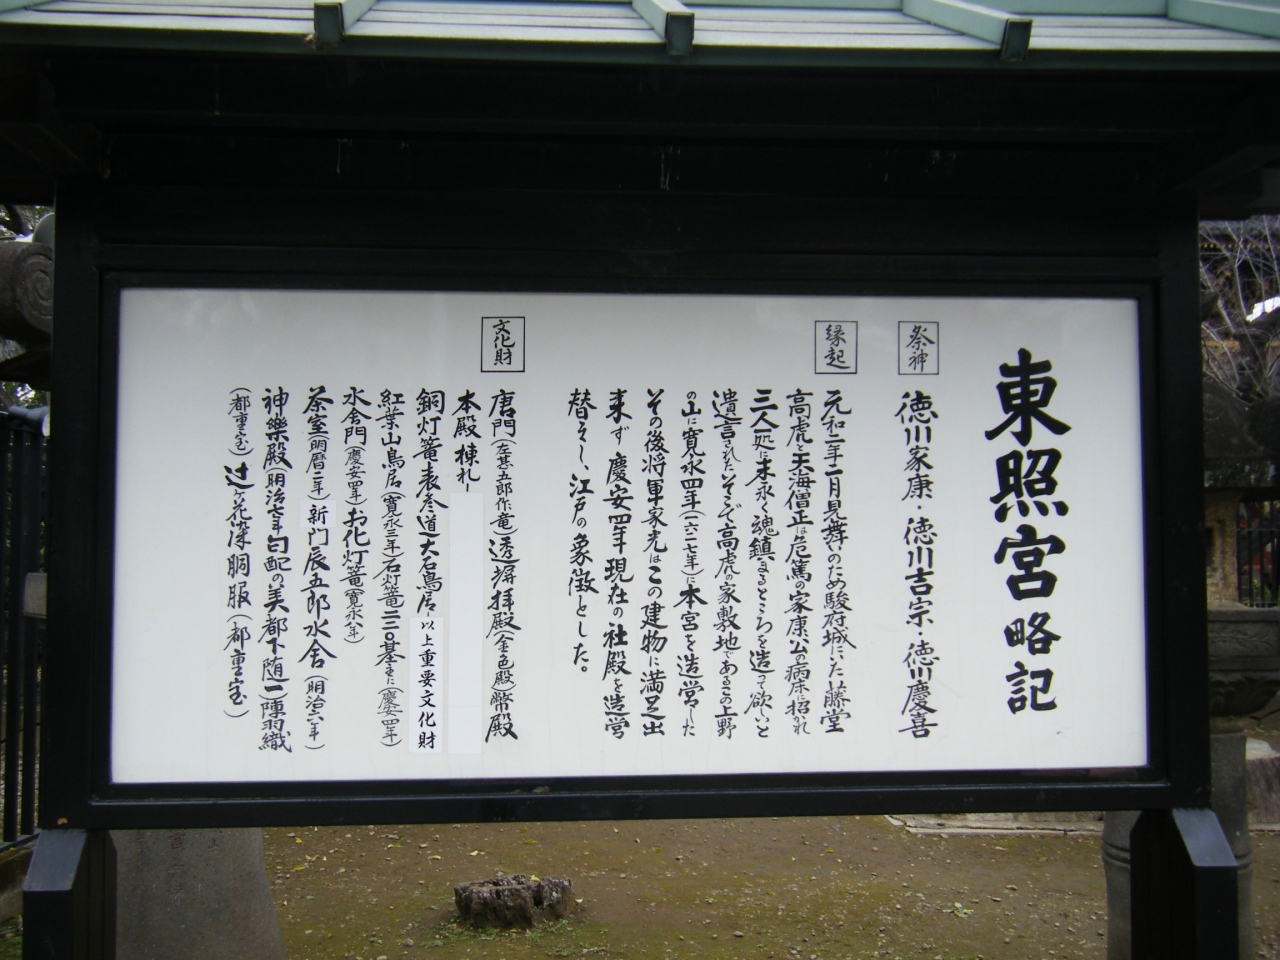 東照宮略記
祭神
徳川家康・徳川吉宗・徳川慶喜
縁起
元和二年二月見舞いのため駿府城にいた藤堂
高虎と天海僧正は危篤の家康公の病床に招かれ
三人一処に末永く魂鎮まるところを造って欲しいと
遺言されたいそうで高虎の家敷地であるこの上野
の山に寛永四年(一六二七年)に本宮を造営した
その後将軍家光はこの建物に満足出
来ず慶安四年現在の社殿を造営
替えし、江戸の象徴とした。
文化財
唐門(左甚五郎作竜)透塀拝殿(金色殿)幣殿
本殿棟札
銅灯篭表参道大石鳥居 以上重要文化財
紅葉山鳥居(寛永三年)石灯篭二二〇基(慶安四年)
水舎門(慶安四年)お化灯篭(寛永八年)
茶室(明暦二年)新門辰五郎水舎(明治六年)
神樂殿(明治七年)勾配の美都下随一)陣羽織
(都重宝)辻ヶ花染胴服(都重宝)